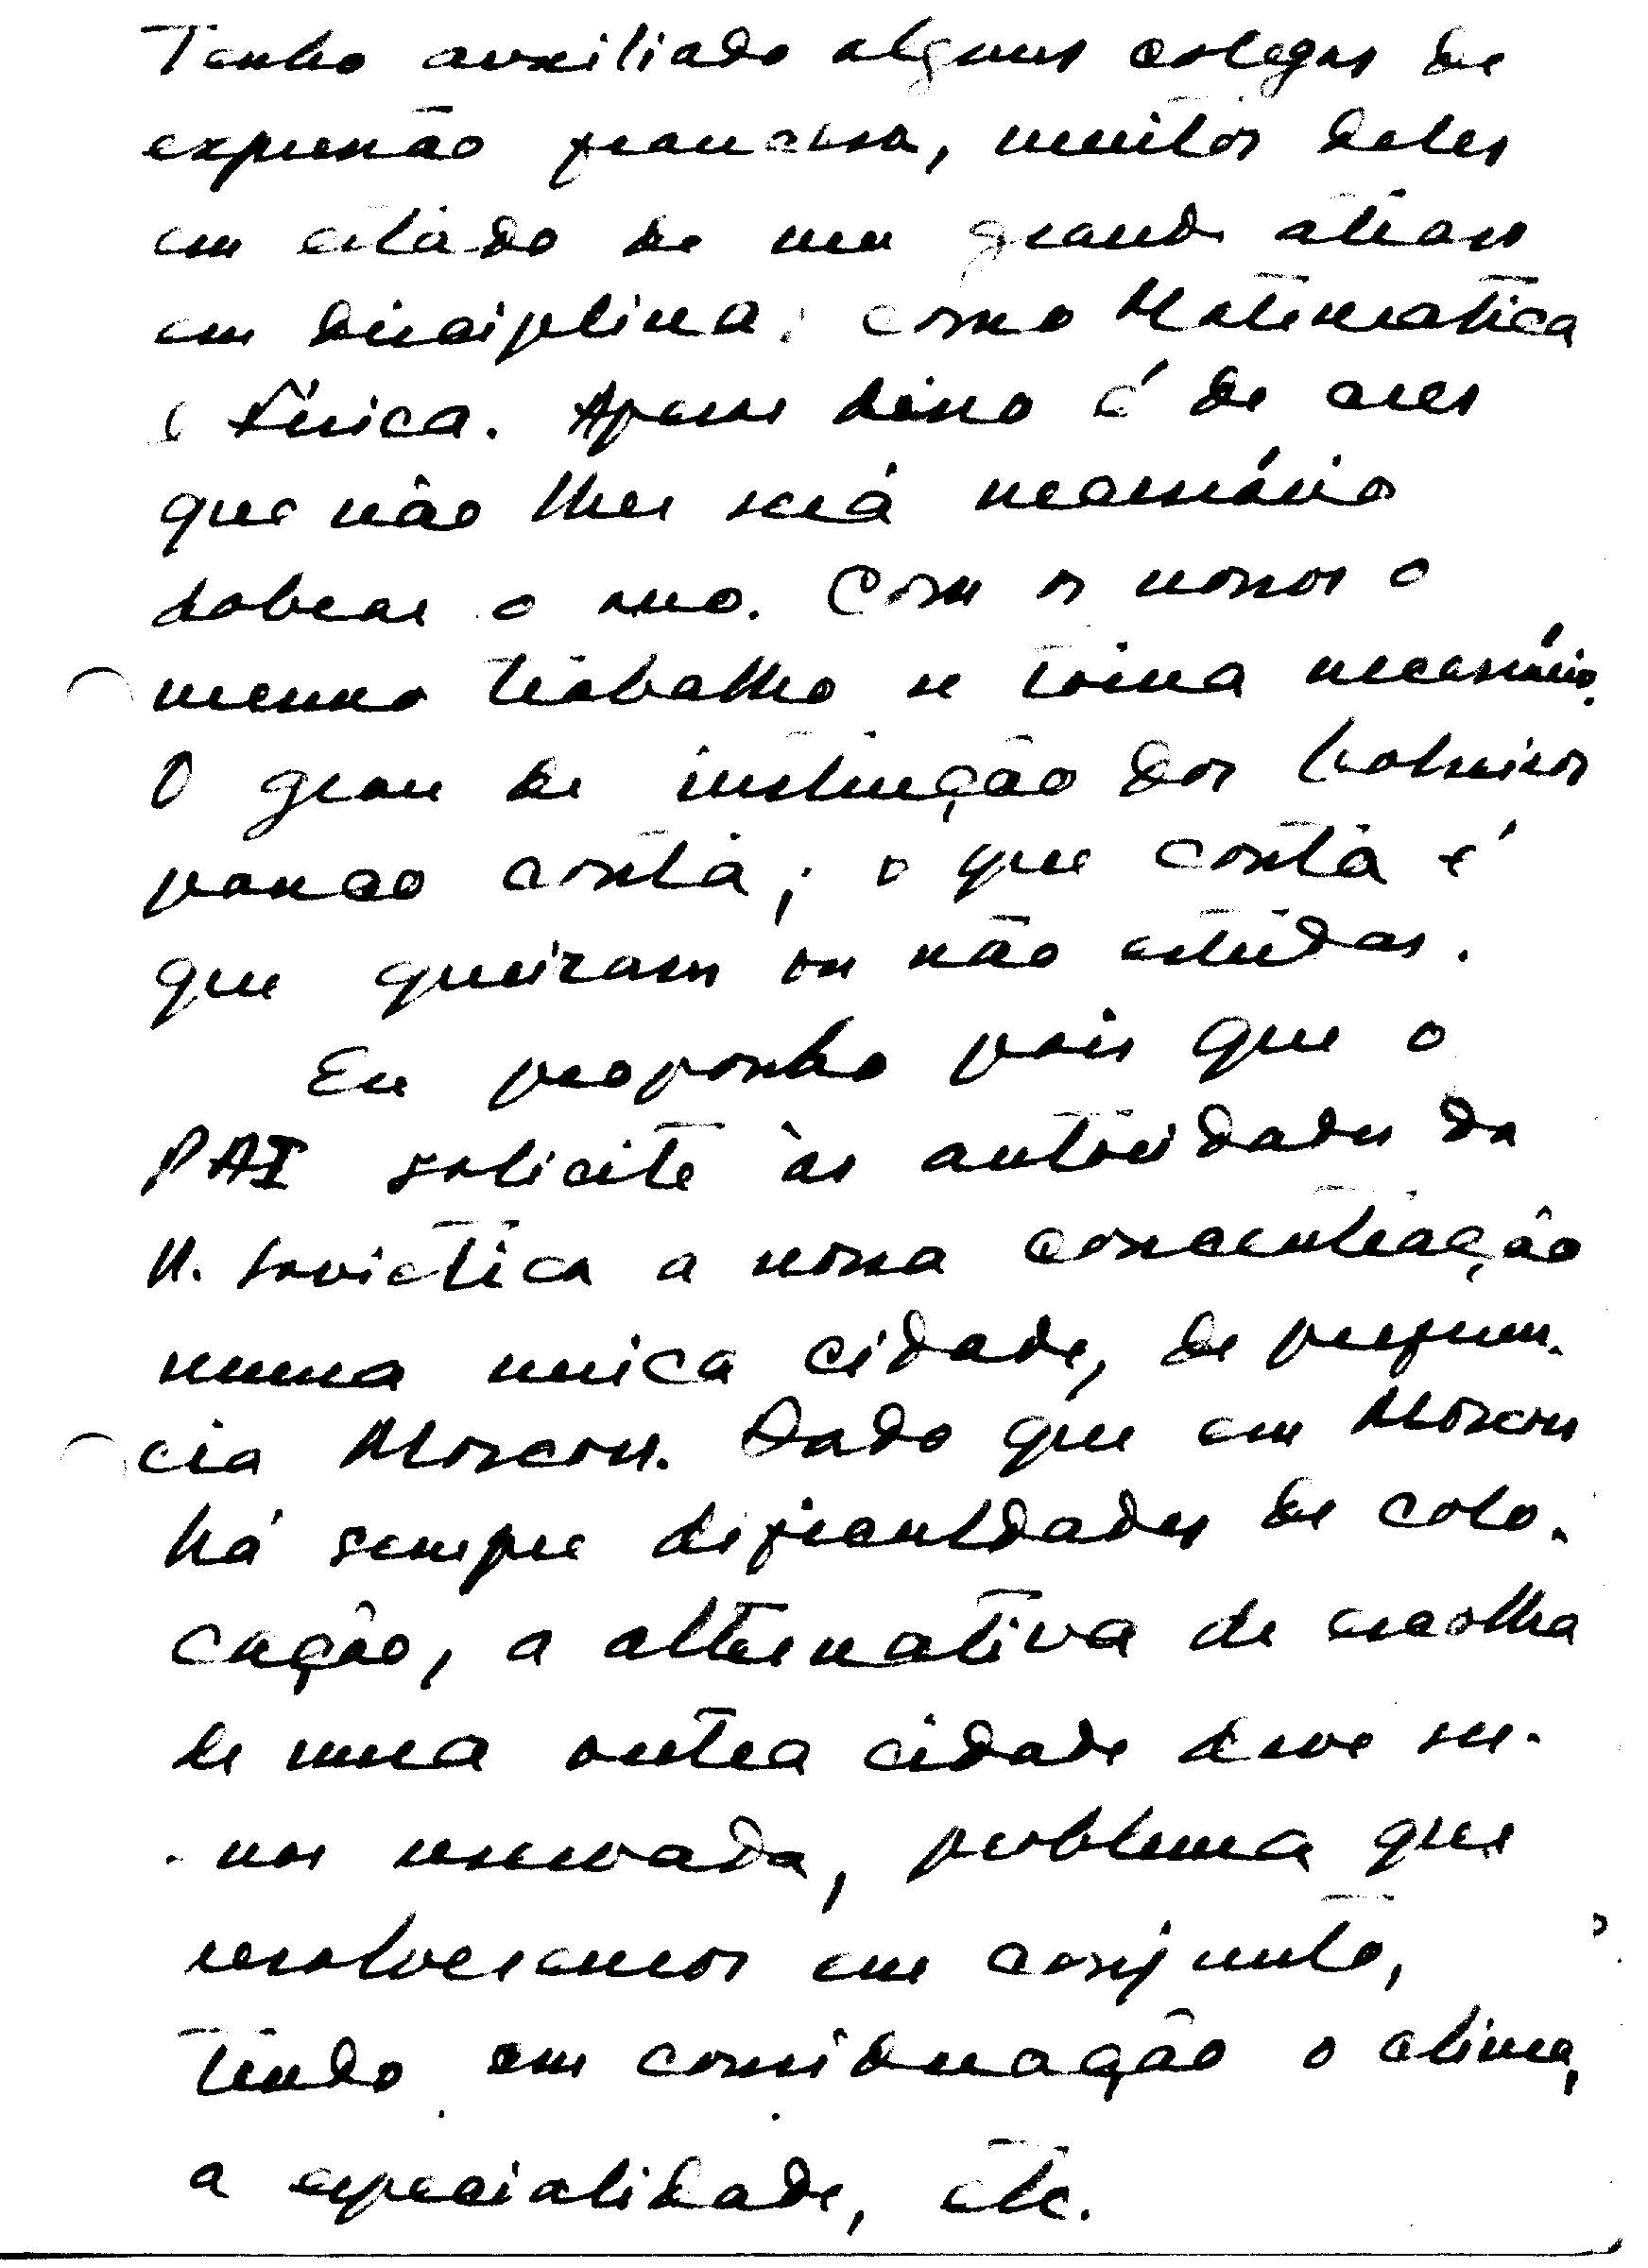 Tenho auxiliado alguns colegas de
expressão francesa, muitos deles
em estado de um grande atraso
em disciplinas como Matemática
e Física. Apesar disso é de crer
que não lhes será necessário
dobrar o ano. Com os nossos o
mesmo trabalho se torna necessário.
O grau de instrução dos bolseiros
pouco conta; o que conta é
que queiram ou não estudar.
Eu proponho pois que o
PAI solicite às autoridades da
U. Soviética a nossa concentração
numa única cidade, de preferên-
cia Moscou. Dado que em Moscou
há sempre dificuldades de colo-
cação, a alternativa de escolha
de uma outra cidade deve ser-
-nos reservada, problema que
resolveremos em conjunto,
tendo em consideração o clima,
a especialidade, etc.